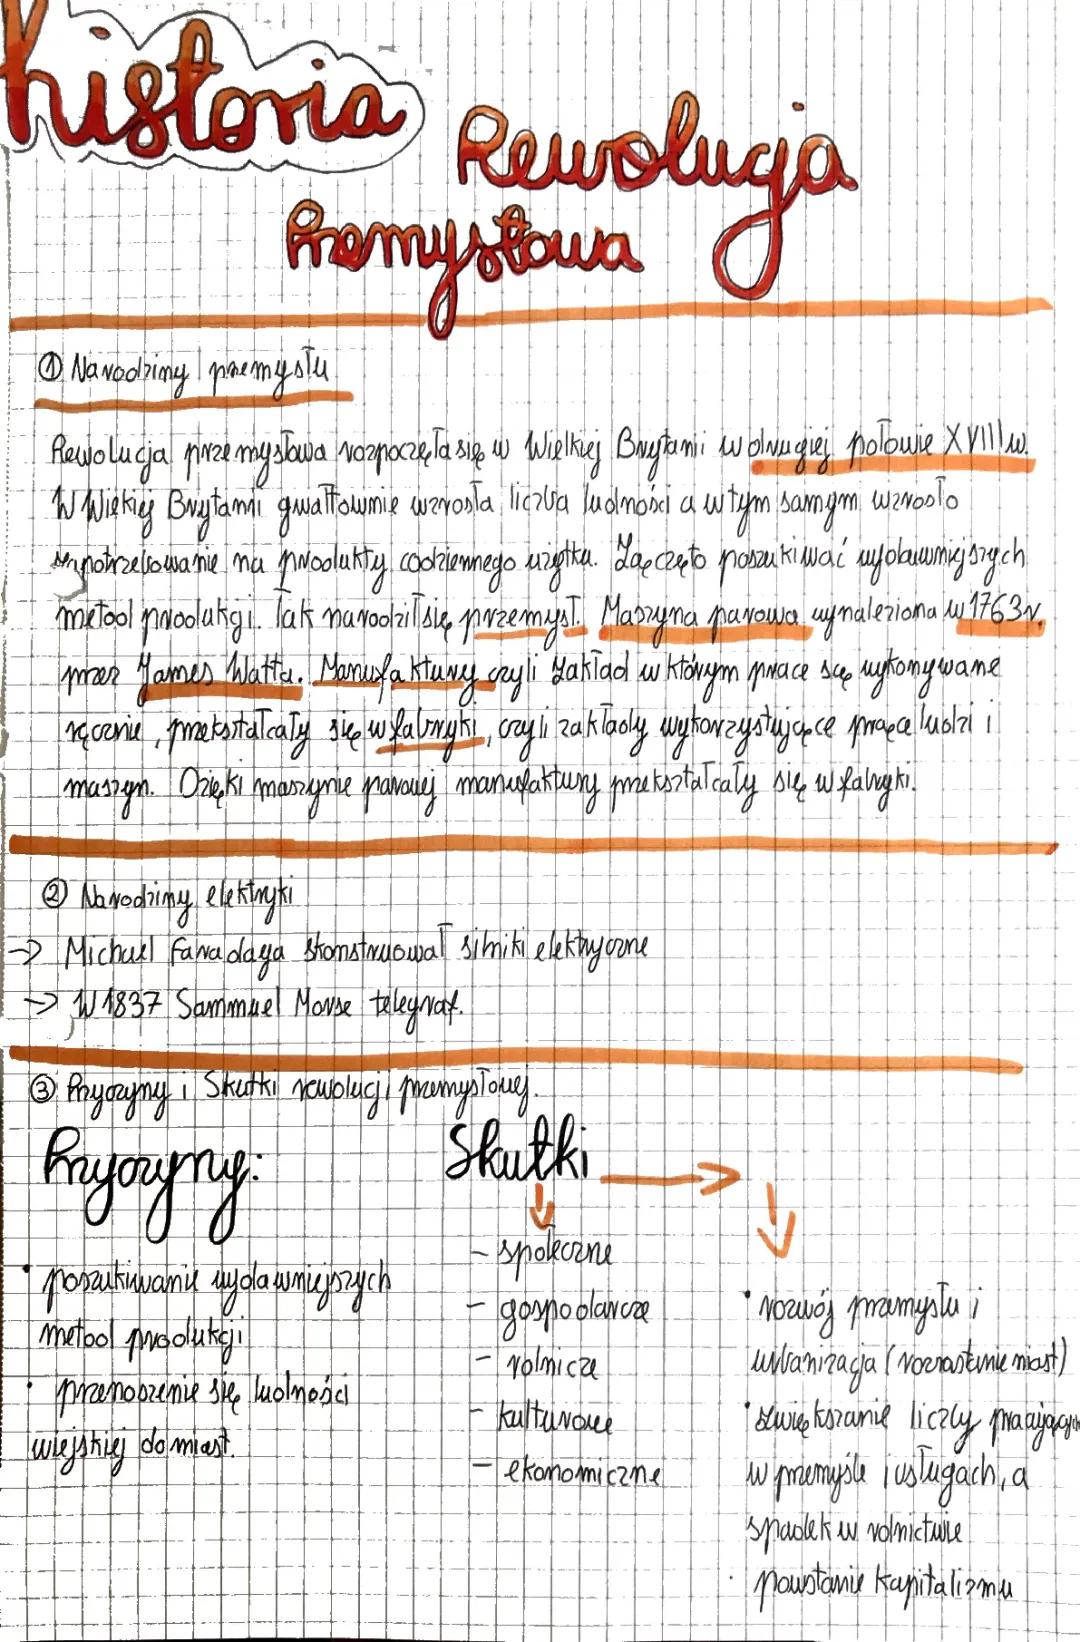 historia
Rewolucja
Przemysłowa
① Narodziny przemysłu
Rewolucja przemysłowa rozpoczęła się w Wielkiej Brytanii w drugiej połowie XVIII w.
W Wielkiej Brytanii gwałtownie wzrosła liczba ludności a w tym samym wzrosło
zapotrzebowanie na produkty codziennego użytku. Zaczęto poszukiwać wydawniejszych
metod produkcji. Tak narodził się przemysł. Maszyna parowa wynaleziona w 1763r.
przez James Watta. Manufaktury czyli zakład w którym prace są wykonywane
ręcznie, przekształcały się w fabryki, czyli zakłady wykorzystujące pracę ludzi i
maszyn. Dzięki maszynie parowej manufaktury przekształcały się w fabryki.
② Narodziny elektryki
→ Michael Faradaya skonstruował silniki elektryczne
→ W 1837 Sammuel Morse telegraf.
③ Przyczyny i Skutki rewolucji przemysłowej.
Przyczyny:
• poszukiwanie wydawniejszych
metod produkcji
• przenoszenie się ludności
wiejskiej do miast.
Skutki →
- społeczne
- gospodarcze
- rolnicze
- kulturowe
- ekonomiczne
• rozwój przemysłu i
urbanizacja (rozrastanie miast)
• zwiększanie liczby pracujących
w przemyśle i usługach, a
spadek w rolnictwie
• powstanie kapitalizmu